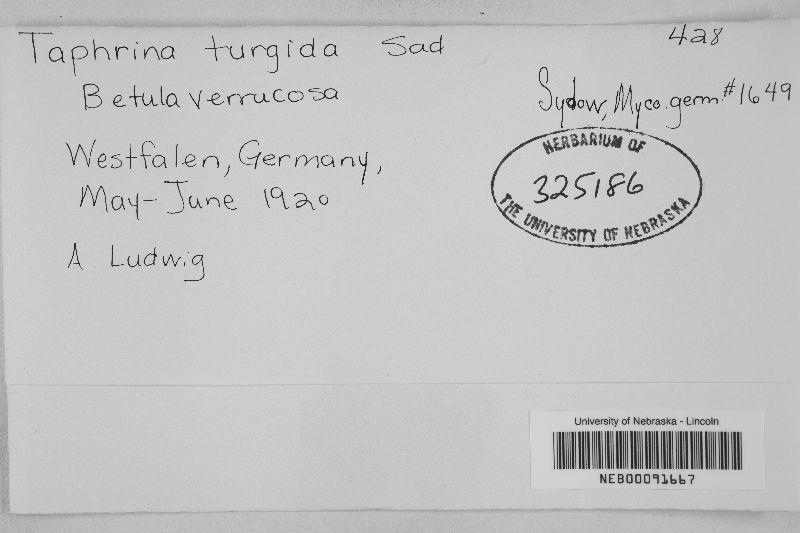 Taphrina turgida Sad
4a8
Betula verrucosa
Sydow, Myco. germ. #1649
Westfalen, Germany,
May-June 1920
A Ludwig
HERBARIUM OF
325186
THE UNIVERSITY OF NEBRASKA
University of Nebraska - Lincoln
NEB00091667